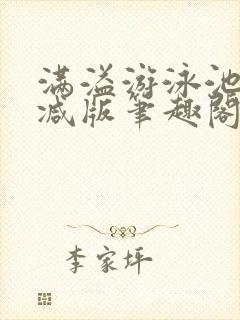 满溢游泳池
减版笔趣阁
李家坪